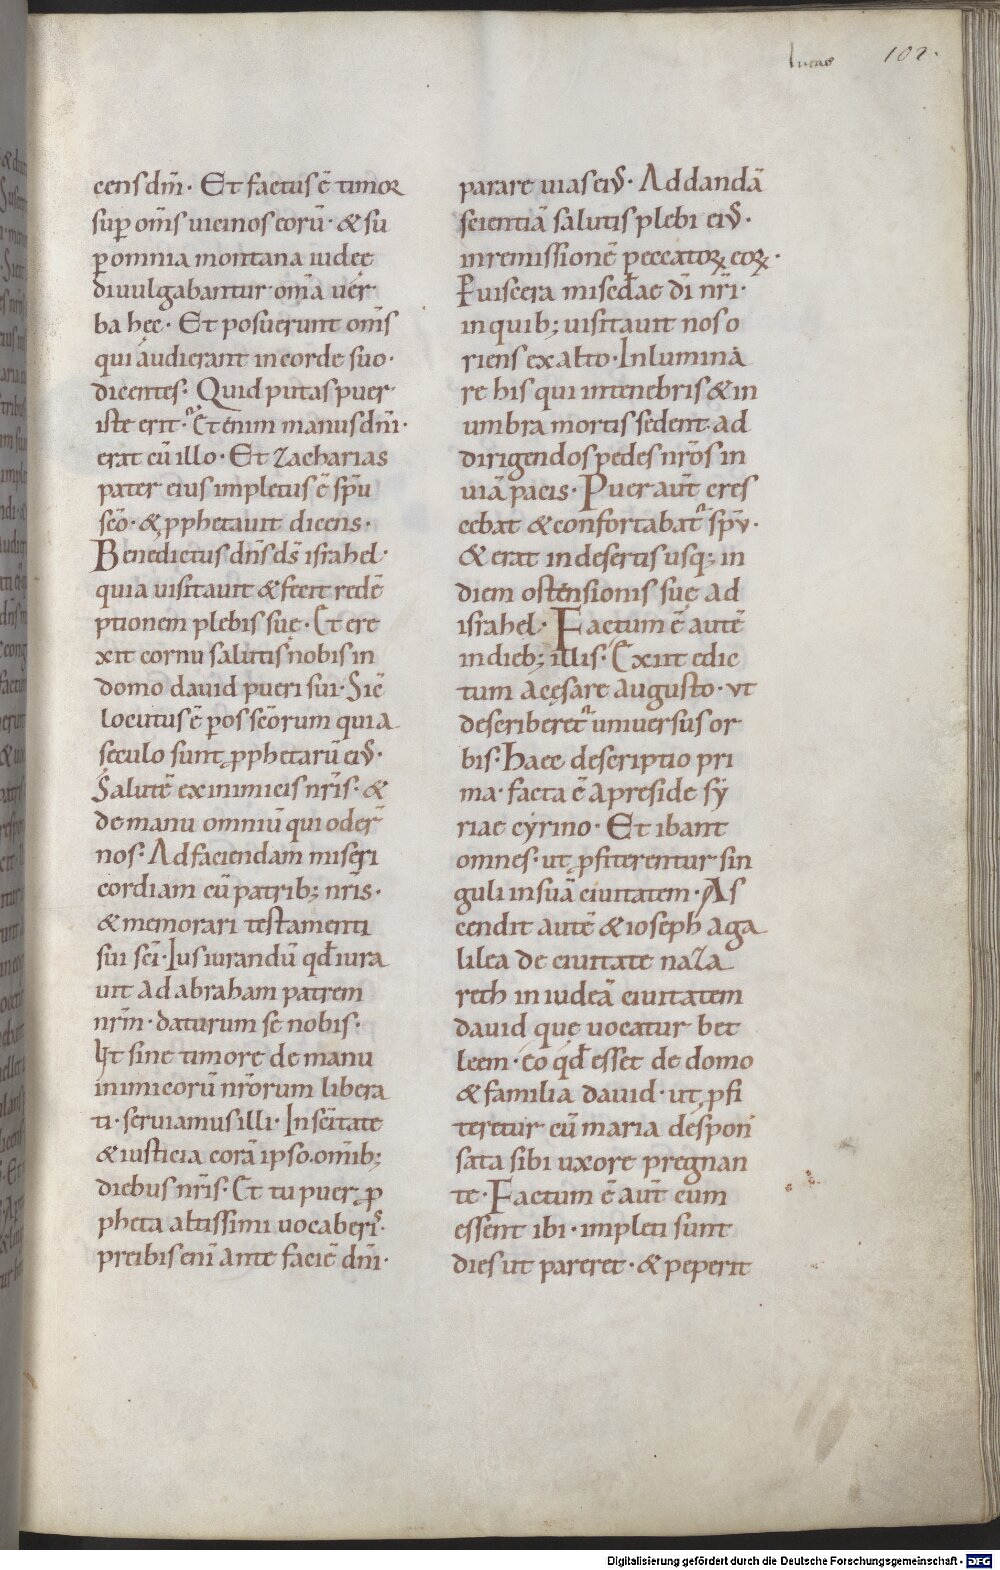 lucas 102.
cens dm̄· Et factus ē timor
sup̱ om̄s uicinos eorū· & su
p̱ omnia montana iudeę
diuulgabantur· om̄a uer
ba hęc· Et posuerunt om̄s
qui audierant in corde suo·
dicentes· Quid putas puer
iste erit· Etenim manus dn̄i·
erat cū illo· Et Zacharias
pater eius impletus ē sp̄u
sc̄o· & ꝓphetauit dicens·
Benedictus dn̄s ds̄ israhel·
quia uisitauit & fecit redē
ptionem plebis suę· Et ere
xit cornu salutis nobis in
domo dauid pueri sui· Sic̄
locutus ē p̱ os sc̄orum qui a
sęculo sunt ꝓphetarū eiꝰ·
Salutē ex inimicis nr̄is· &
de manu omniū qui oder̄
nos· Ad faciendam miseri
cordiam cū patrib; nr̄is·
& memorari testamenti
sui sc̄i· Iusiurandū qđ iura
uit ad abraham patrem
nr̄m· daturum se nobis·
Ut sine timore de manu
inimicorū nr̄orum libera
ti· seruiamus illi· In sc̄itate
& iusticia corā ipso· om̄ib;
diebus nr̄is· Et tu puer ꝓ
pheta altissimi uocaberis·
preibis eni̅ ante faciē dn̄i·
parare uias eiꝰ· Ad dandā
scientiā salutis plebi eiꝰ·
in remissionē peccatoꝝ eoꝝ·
P̱ uiscera miscđae dī nr̄i·
in quib; uisitauit nos o
riens ex alto· Inlumina
re his qui in tenebris & in
umbra mortis sedent· ad
dirigendos pedes nr̄os in
uiā pacis· Puer aut̄ cres
cebat & confortabat᷑ sp̄u·
& erat in desertis usq; in
diem ostensionis suę ad
israhel· Factum ē autē
in dieb; illis· Exiit edic
tum a cęsare augusto· ut
describeret᷑ uniuersus or
bis· Haec descriptio pri
ma· facta ē a preside sẏ
riae cẏrino· Et ibant
omnes· ut ꝓfiterentur sin
guli in suā ciuitatem· As
cendit autē & ioseph a ga
lilea de ciuitate naza
reth in iudeā ciuitatem
dauid quę uocatur bet
leem· eo qđ esset de domo
& familia dauid· ut ꝓfi
teretur cū maria despon
sata sibi uxore pregnan
te· Factum ē aut̄ cum
essent ibi· impleti sunt
dies ut pareret· & peperit
Digitalisierung gefördert durch die Deutsche Forschungsgemeinschaft - DFG